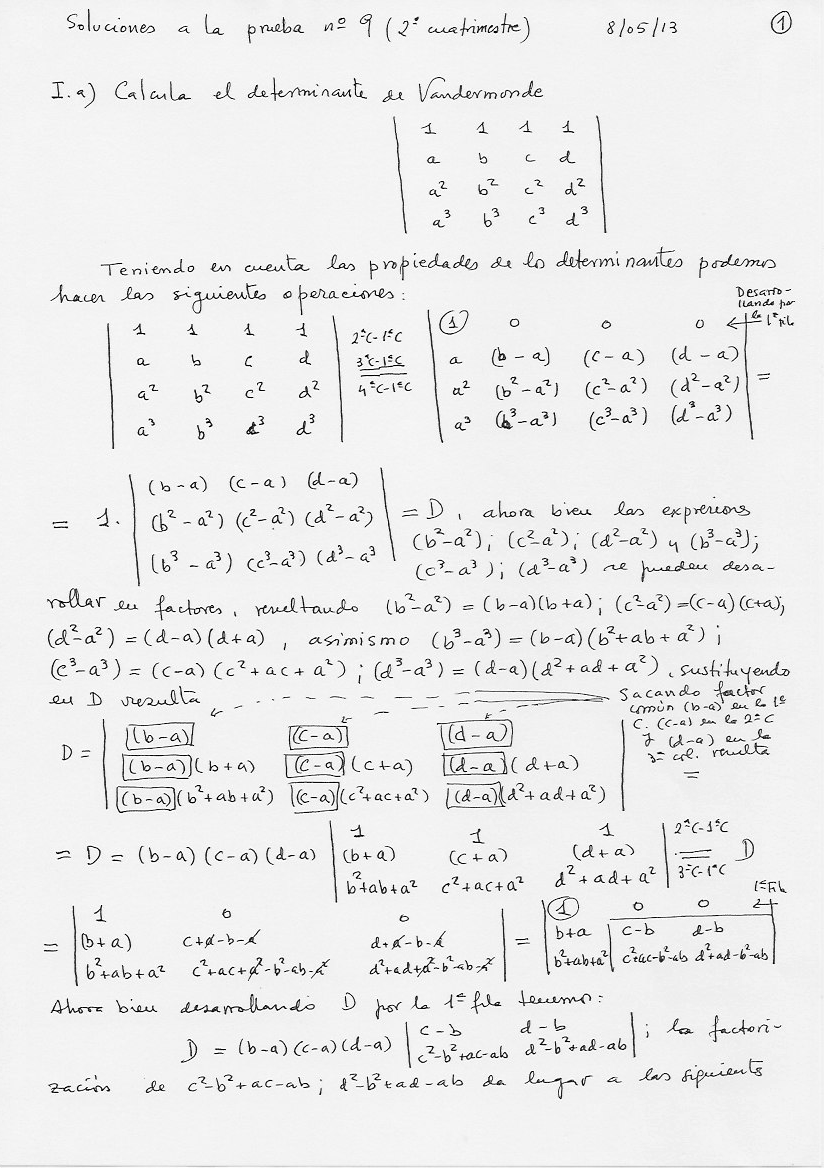 Soluciones a la prueba nº 9 (2º cuatrimestre) 8/05/13 ①
I.a) Calcula el determinante de Vandermonde
| 1 1 1 1 |
| a b c d |
| a² b² c² d² |
| a³ b³ c³ d³ |
Teniendo en cuenta las propiedades de los determinantes podemos
hacer las siguientes operaciones:
Desarro-
llando por
la 1ª fila
| 1 1 1 1 | 2ªC-1ªC | ① 0 0 0 ← |
| a b c d | 3ªC-1ªC | a (b-a) (c-a) (d-a) |
| a² b² c² d² | 4ªC-1ªC | a² (b²-a²) (c²-a²) (d²-a²) | =
| a³ b³ c³ d³ | | a³ (b³-a³) (c³-a³) (d³-a³) |
| (b-a) (c-a) (d-a) |
= 1. | (b²-a²) (c²-a²) (d²-a²) | = D, ahora bien las expresions
| (b³-a³) (c³-a³) (d³-a³ | (b²-a²); (c²-a²); (d²-a²) y (b³-a³);
(c³-a³); (d³-a³) se pueden desa-
rrollar en factores, resultando (b²-a²) = (b-a)(b+a); (c²-a²) = (c-a)(c+a);
(d²-a²) = (d-a)(d+a), asimismo (b³-a³) = (b-a)(b²+ab+a²);
(c³-a³) = (c-a)(c²+ac+a²); (d³-a³) = (d-a)(d²+ad+a²), sustituyendo
en D resulta
Sacando factor
común (b-a) en la 1ª
C. (c-a) en la 2ªC
y (d-a) en la
3ª col. resulta
=
| (b-a) (c-a) (d-a) |
D = | (b-a)(b+a) (c-a)(c+a) (d-a)(d+a) |
| (b-a)(b²+ab+a²) (c-a)(c²+ac+a²) (d-a)(d²+ad+a²) |
| 1 1 1 | 2ªC-1ªC
= D = (b-a)(c-a)(d-a) | (b+a) (c+a) (d+a) | = D
| b²+ab+a² c²+ac+a² d²+ad+a² | 3ªC-1ªC
1ª Fila
| 1 0 0 | | ① 0 0 ← |
= | (b+a) c+a-b-a d+a-b-a | = | b+a c-b d-b |
| b²+ab+a² c²+ac+a²-b²-ab-a² d²+ad+a²-b²-ab-a² | | b²+ab+a² c²+ac-b²-ab d²+ad-b²-ab |
Ahora bien desarrollando D por la 1ª fila tenemos:
| c-b d-b |
D = (b-a)(c-a)(d-a) | c²-b²+ac-ab d²-b²+ad-ab | ; la factori-
zación de c²-b²+ac-ab; d²-b²+ad-ab da lugar a las siguients